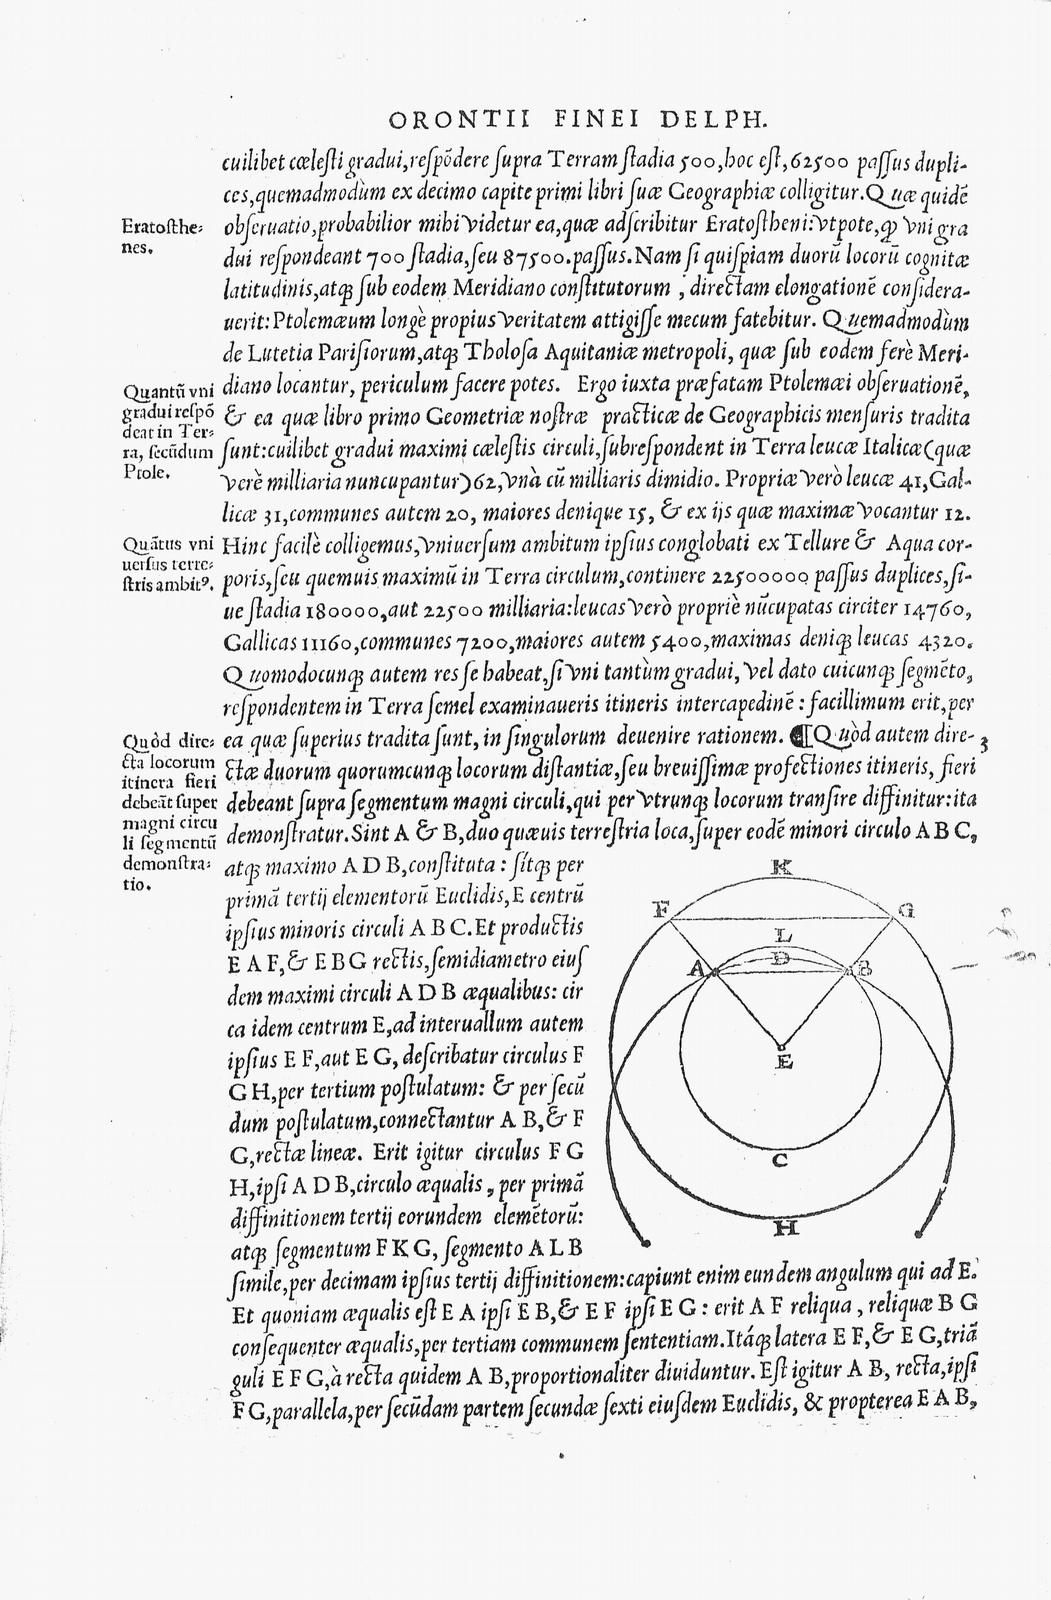 ORONTII FINEI DELPH.
cuilibet cælesti gradui,respõdere supra Terram stadia 500,hoc est,62500 passus dupli-
ces,quemadmodùm ex decimo capite primi libri suæ Geographiæ colligitur.Quæ quidẽ
Eratosthe=
nes.
obseruatio,probabilior mihi videtur ea,quæ adscribitur Eratostheni:vtpote,ꝙ vni gra
dui respondeant 700 stadia,seu 87500.passus.Nam si quispiam duorũ locorũ cognitæ
latitudinis,atq; sub eodem Meridiano constitutorum , directam elongationẽ considera-
uerit:Ptolemæum longè propius veritatem attigisse mecum fatebitur. Quemadmodùm
de Lutetia Parisiorum,atq; Tholosa Aquitaniæ metropoli, quæ sub eodem ferè Meri-
diano locantur, periculum facere potes. Ergo iuxta præfatam Ptolemæi obseruationẽ,
Quantũ vni
gradui respõ
deat in Ter=
ra, secũdum
Ptole.
& ea quæ libro primo Geometriæ nostræ practicæ de Geographicis mensuris tradita
sunt:cuilibet gradui maximi cælestis circuli,subrespondent in Terra leucæ Italicæ(quæ
verè milliaria nuncupantur)62,vnà cũ milliaris dimidio. Propriæ verò leucæ 41,Gal-
licæ 31,communes autem 20, maiores denique 15, & ex ijs quæ maximæ vocantur 12.
Quãtus vni
uersus terre=
stris ambitꝰ.
Hinc facilè colligemus,vniuersum ambitum ipsius conglobati ex Tellure & Aqua cor-
poris,seu quemuis maximũ in Terra circulum,continere 22500000 passus duplices,si-
ue stadia 180000,aut 22500 milliaria:leucas verò propriè nũcupatas circiter 14760,
Gallicas 11160,communes 7200,maiores autem 5400,maximas deniq; leucas 4320.
Quomodocunq; autem res se habeat,si vni tantùm gradui, vel dato cuicunq; segmẽto,
respondentem in Terra semel examinaueris itineris intercapedinẽ : facillimum erit,per
ea quæ superius tradita sunt, in singulorum deuenire rationem. ¶Quòd autem dire- 3
Quòd dire=
cta locorum
itinera fieri
debeãt super
magni circu
li segmentũ
demonstra=
tio.
ctæ duorum quorumcunq; locorum distantiæ,seu breuissimæ profectiones itineris, fieri
debeant supra segmentum magni circuli,qui per vtrunq; locorum transire diffinitur:ita
demonstratur.Sint A & B,duo quæuis terrestria loca,super eodẽ minori circulo A B C,
atq; maximo A D B,constituta : sítq; per
primã tertij elementorũ Euclidis,E centrũ
ipsius minoris circuli A B C.Et productis
E A F,& E B G rectis,semidiametro eius
dem maximi circuli A D B æqualibus: cir
ca idem centrum E,ad interuallum autem
ipsius E F,aut E G, describatur circulus F
G H,per tertium postulatum: & per secũ
dum postulatum,connectantur A B,& F
G,rectæ lineæ. Erit igitur circulus F G
H,ipsi A D B,circulo æqualis , per primã
diffinitionem tertij eorundem elemẽtorũ:
atq; segmentum F K G, segmento A L B
K
F
G
L
D
A
B
E
C
H
simile,per decimam ipsius tertij diffinitionem:capiunt enim eundem angulum qui ad E.
Et quoniam æqualis est E A ipsi E B,& E F ipsi E G : erit A F reliqua , reliquæ B G
consequenter æqualis,per tertiam communem sententiam.Itáq; latera E F,& E G,triã
guli E F G,à recta quidem A B,proportionaliter diuiduntur. Est igitur A B, recta,ipsi
F G,parallela,per secũdam partem secundæ sexti eiusdem Euclidis, & propterea E A B,